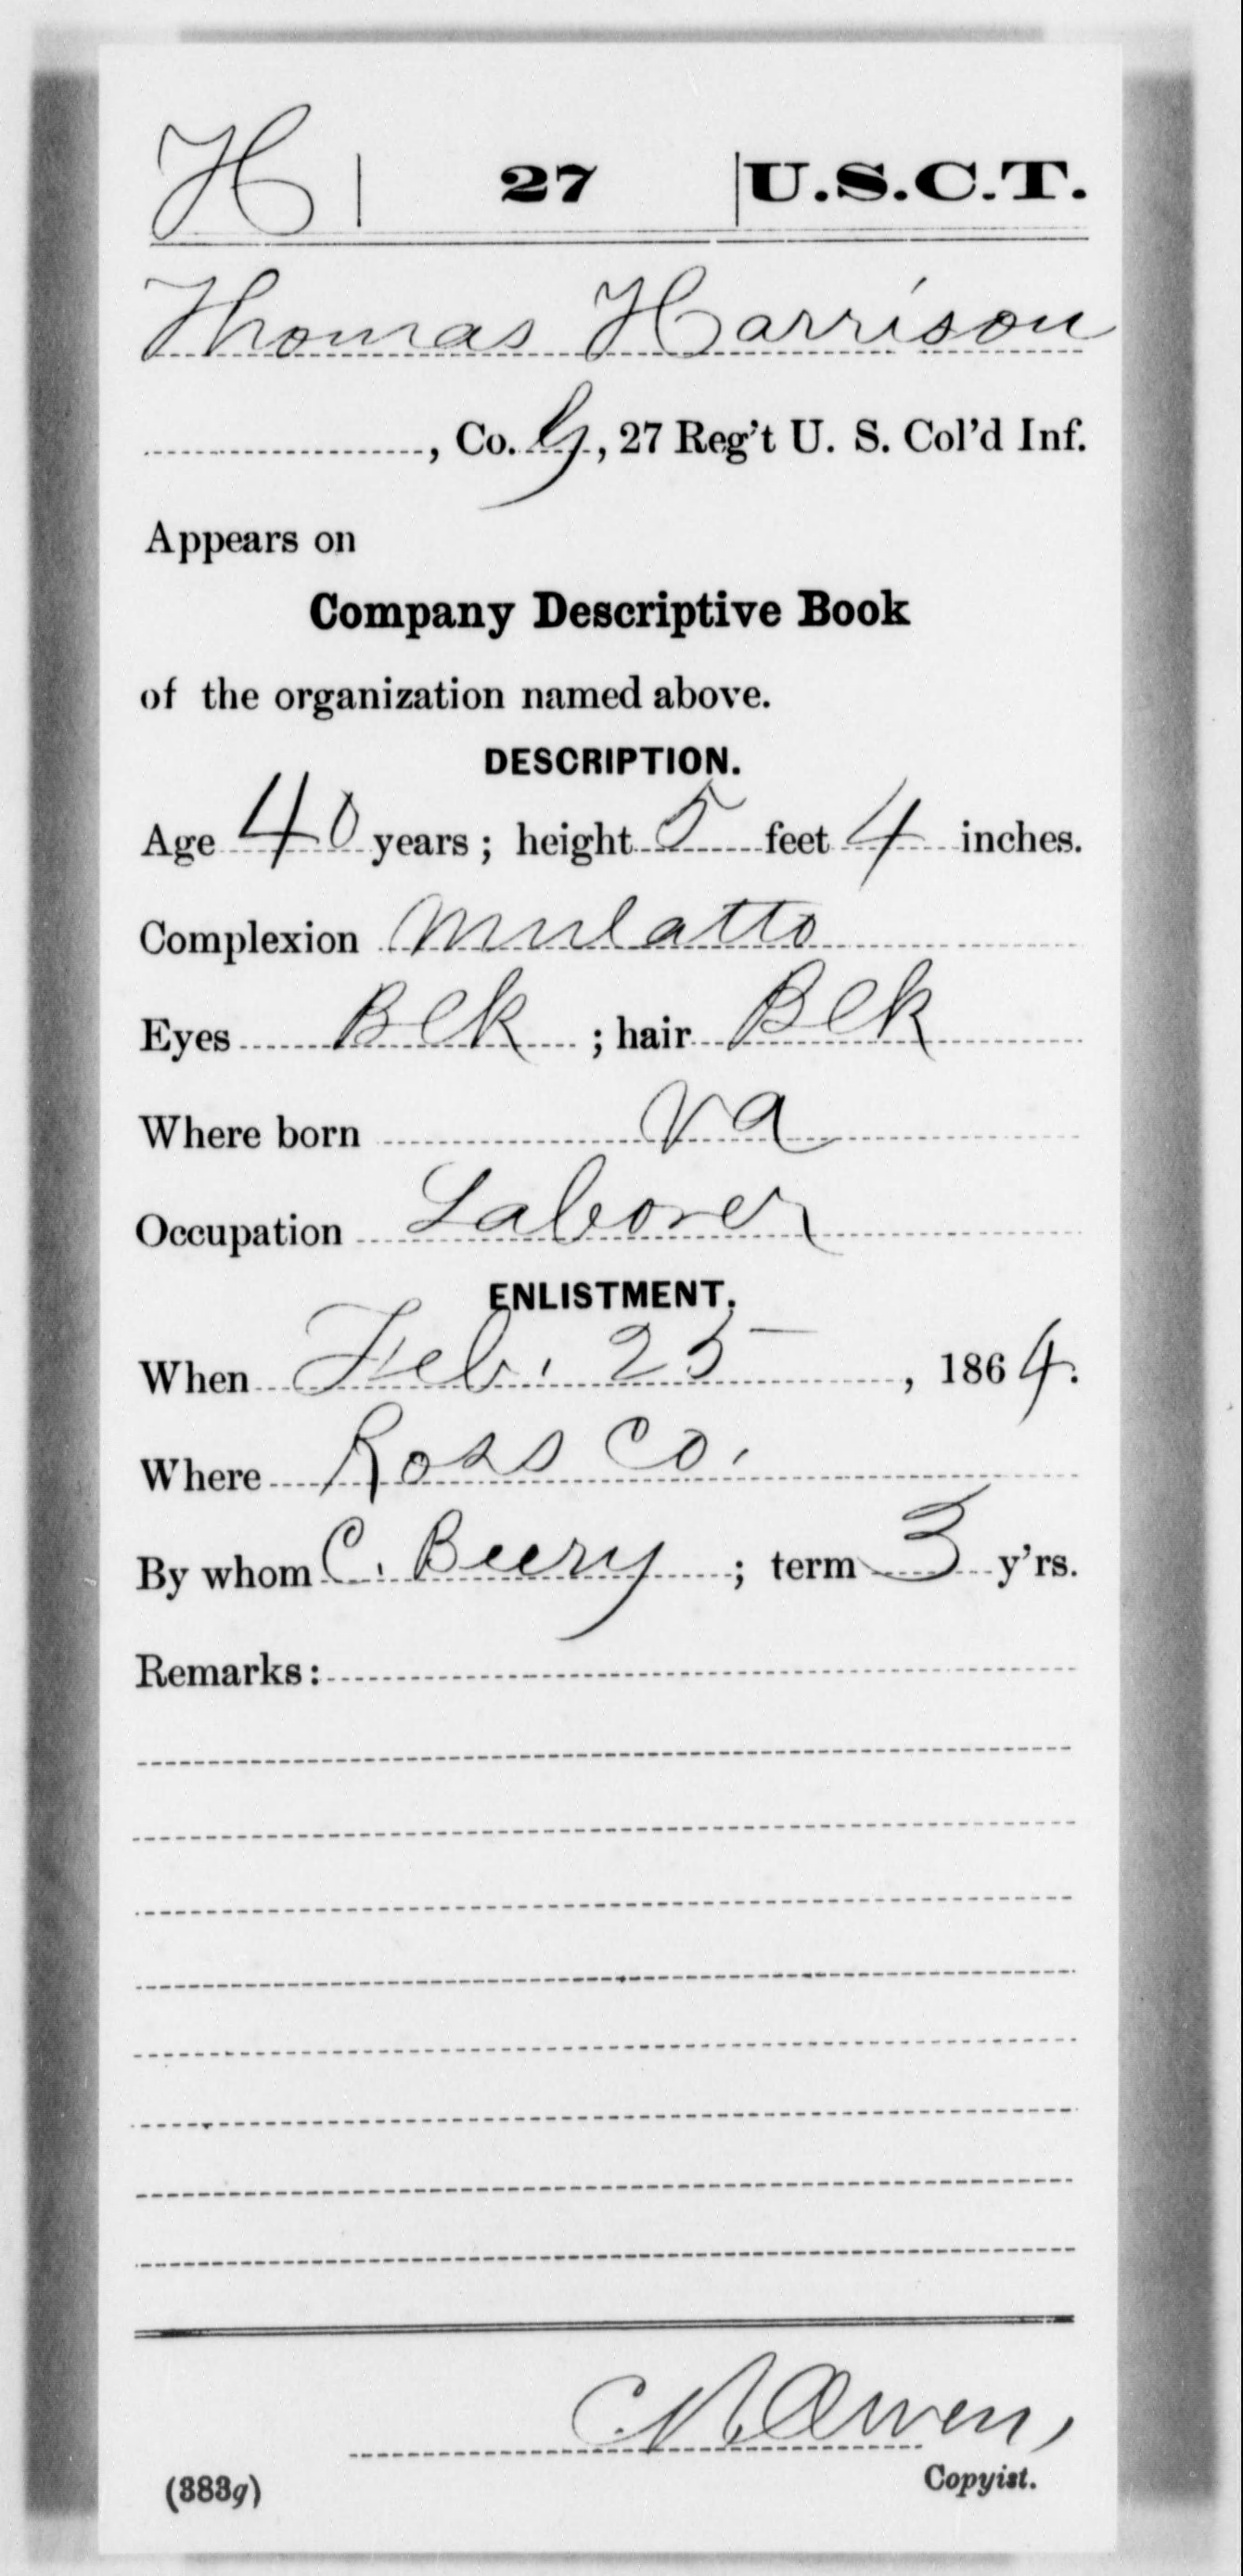 H | 27 | U.S.C.T.
Thomas Harrison
, Co. G, 27 Reg't U. S. Col'd Inf.
Appears on
Company Descriptive Book
of the organization named above.
DESCRIPTION.
Age 40 years; height 5 feet 4 inches.
Complexion Mulatto
Eyes Blk; hair Blk
Where born Va
Occupation Laborer
ENLISTMENT.
When Feb. 25, 1864.
Where Ross Co.
By whom C. Beery; term 3 y'rs.
Remarks:
Owen,
Copyist.
(383g)